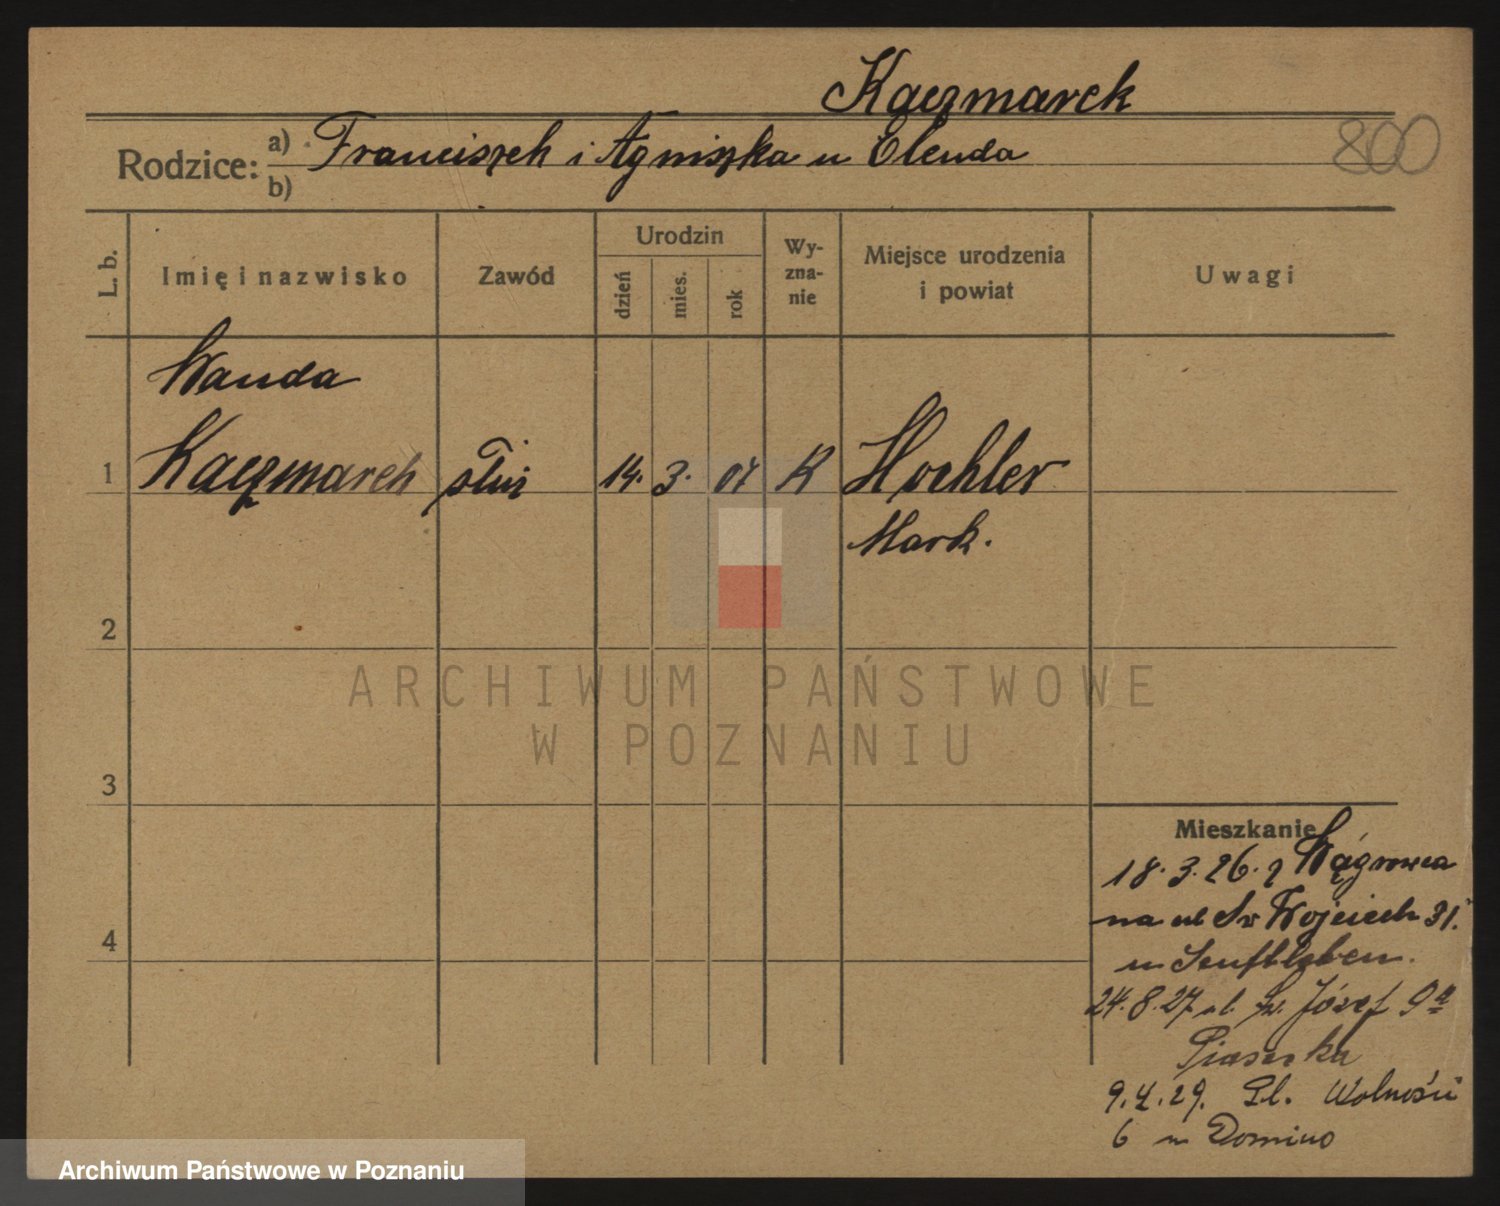 Kaczmarek
800
Rodzice: a) Franciszek i Agniszka u Elenda
b)
L. b.
Imię i nazwisko
Zawód
Urodzin
dzień
mies.
rok
Wy-
zna-
nie
Miejsce urodzenia
i powiat
Uwagi
Wanda
1 Kaczmarek służ 14. 3. 07 K Hochler
Mark.
2
3
4
ARCHIWUM PAŃSTWOWE
W POZNANIU
Mieszkanie
18.3.26. z Wągrowca
na ul Sw Wojciech 31.
u Senftleben.
24.8.27 ul. Sw. Józef 9a
Piasecka
9.4.29. Pl. Wolności
6 u Domino
Archiwum Państwowe w Poznaniu